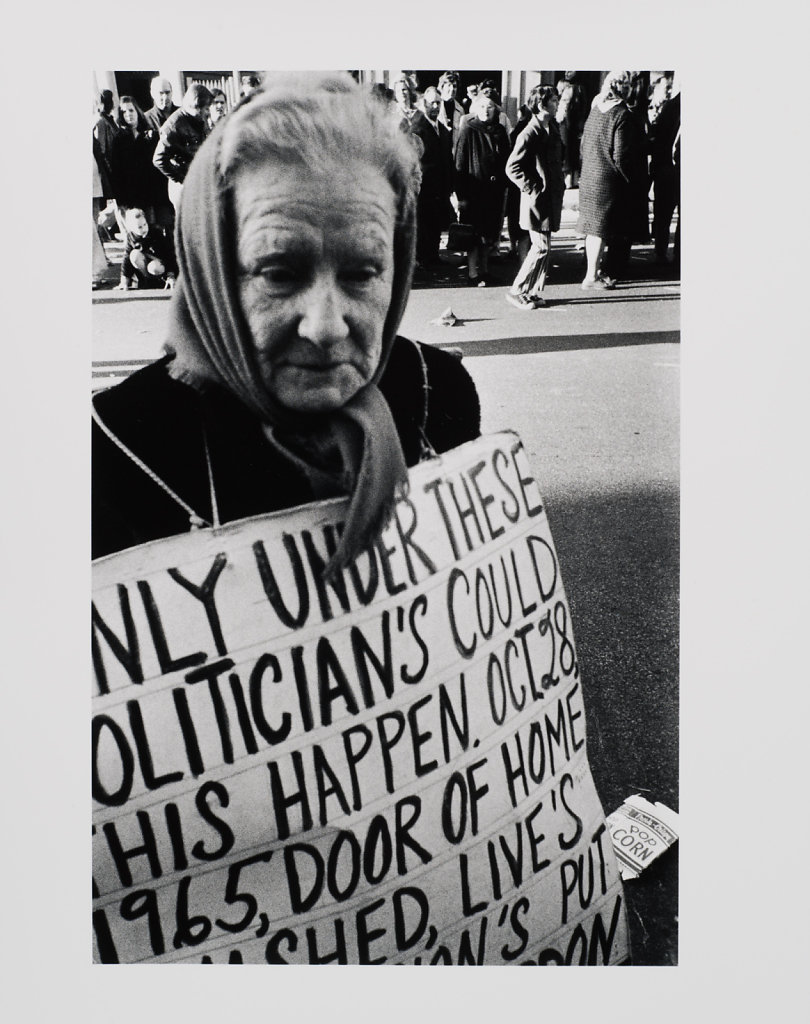 NLY UNDER THESE
OLITICIAN'S COULD
THIS HAPPEN. OCT. 28,
1965, DOOR OF HOME
SHED, LIVE'S
N'S PUT
POP
CORN